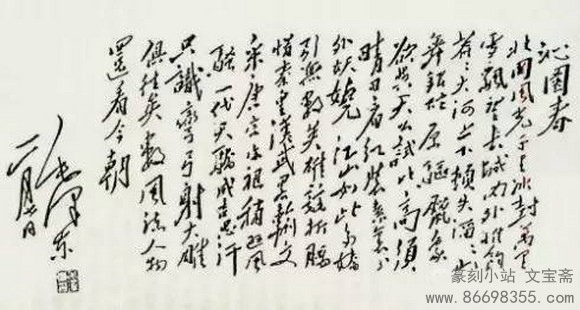 沁園春
北国风光千里冰封萬里
雪飘望长城内外惟餘
莽莽大河上下顿失滔滔山
舞银蛇原驱腊象
欲与天公试比高须
晴日看红装素裹分
外妖娆 江山如此多娇
引無数英雄竞折腰
惜秦皇漢武略输文
采唐宗宋祖稍逊风
骚一代天骄成吉思汗
只識弯弓射大雕
俱往矣数风流人物
還看今朝
毛泽东
篆刻小站 文宝斋
www.86698355.com